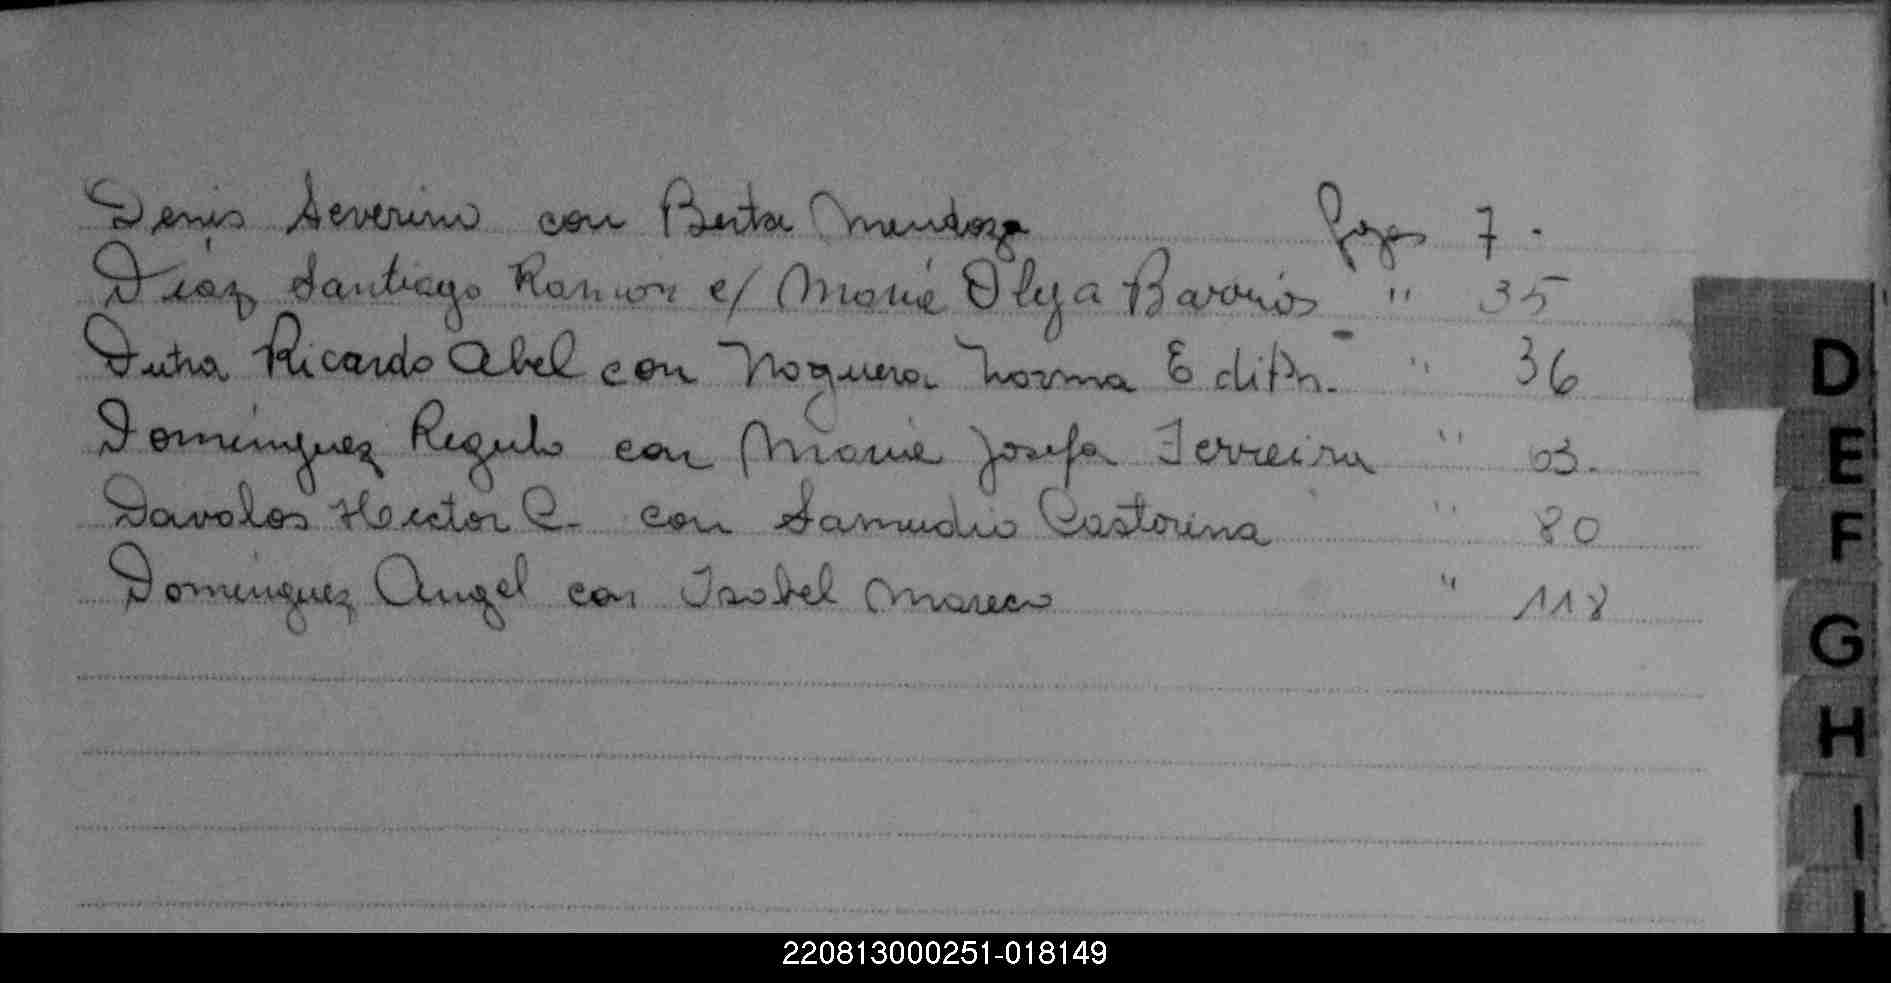 Denis Severino con Berta Mendoza fojas 7.
Díaz Santiago Ramón c/ María Olga Barrios " 35
Dutra Ricardo Abel con Noguera Norma Edith. " 36
Domínguez Regulo con María Josefa Ferreira " 63.
Davalos Hector C. con Samudio Castorina " 80
Domínguez Angel con Isabel Mareco " 118
D
E
F
G
H
I
220813000251-018149